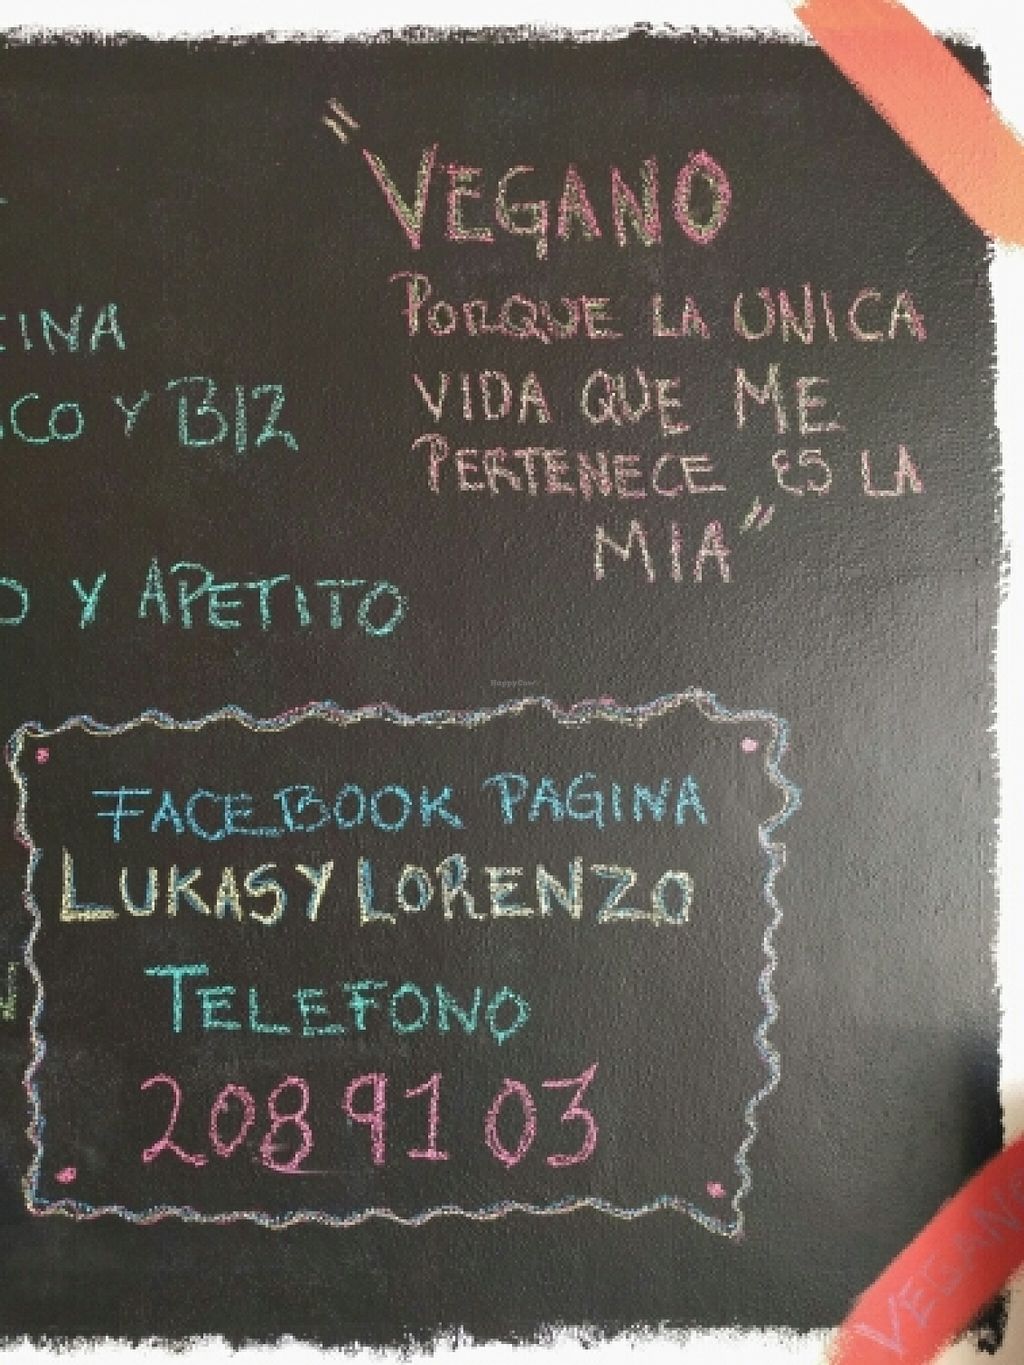 "VEGANO
PORQUE LA UNICA
VIDA QUE ME
PERTENECE ES LA
MIA"
Y BIZ
Y APETITO
FACEBOOK PAGINA
LUKAS Y LORENZO
TELEFONO
208 91 03
HappyCow
VEGANO